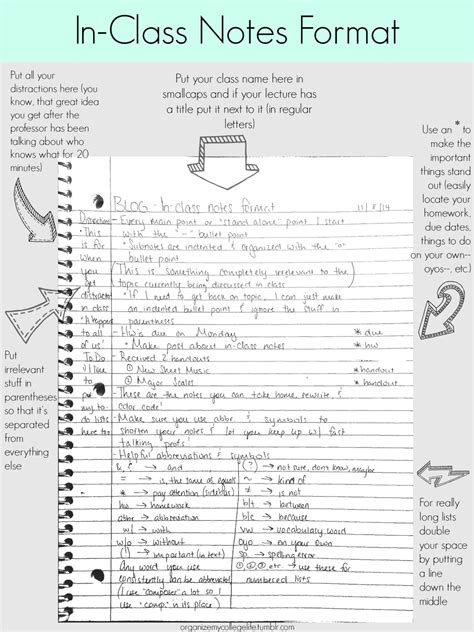 In-Class Notes Format
Put all your
distractions here (you
know, that great idea
you get after the
professor has been
talking about who
knows what for 20
minutes)
Put your class name here in
smallcaps and if your lecture has
a title put it next to it (in regular
letters)
Use an *
to
make the
important
things stand
out (easily
locate your
homework,
due dates,
things to do
on your own--
oyos--, etc.)
Put
irrelevant
stuff in
parentheses
so that it's
separated
from
everything
else
For really
long lists
double
your space
by putting
a line
down the
middle
BLOG - In-class notes format 11/5/14
Distractions - Every main point or "stand alone" point I start
"This with the "-" bullet point
is for * Subnotes are indented & organized with the "*"
when bullet point
you (This is something completely irrelevant to the
get topic currently being discussed in class
distracted * If I need to get back on topic, I can just make
in class an indented bullet point & ignore the stuff in
*It happens parentheses
to all - Hw's due on Monday * due
of us! * Make post about in-class notes * hw
To Do - Received 2 handouts
I like ① New Sheet Music * handout
to ② Major Scales * handout
put - These are the notes you can take home, rewrite, &
my to- color code!
do lists - Make sure you use abbr. & symbols to
here too shorten your notes & let you keep up w/ fast
talking profs!
- Helpful abbreviations & symbols
&, + → and (?) → not sure, don't know, maybe
= → is, the same as, equals ~ → kind of
* → pay attention (sidebar) ≠ → is not
hw → homework b/t → between
abbr → abbreviation b/c → because
w/ → with vw → vocabulary word
w/o → without oyo → on your own
(!) → important (in text) sp → spelling error
Any word you can ①, ②, etc → use these for
consistently can be abbreviated numbered lists
I use "composer" a lot so I
use "comp." in its place)
organizemycollegelife.tumblr.com